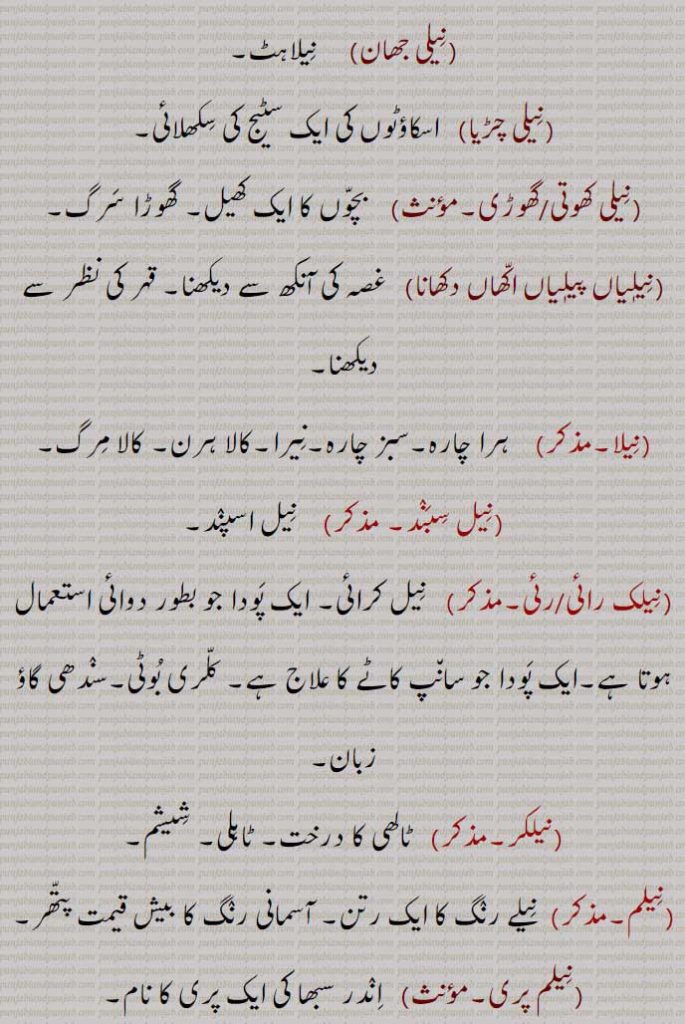 (نِیلی جھان) نِیلاہٹ۔
(نِیلی چڑیا) اسکاؤٹوں کی ایک سٹیج کی سِکھلائی۔
(نِیلی کھوتی/گھوڑی۔مؤنث) بچوّں کا ایک کھیل۔ گھوڑا سَرگ۔
(نِیلیاں پیلیاں اکّھاں دکھانا) غصہ کی آنکھ سے دیکھنا۔ قہر کی نظر سے
دیکھنا۔
(نِیلا۔مذکر) ہرا چارہ۔سبز چارہ۔نِیرا۔کالا ہرن۔ کالا مِرگ۔
(نِیل سِبَنْد۔ مذکر) نِیل اسپنْد۔
(نِیلک رائی/رئی۔مذکر) نِیل کرائی۔ ایک پَودا جو بطور دوائی استعمال
ہوتا ہے۔ایک پَودا جو سانْپ کاٹے کا علاج ہے۔ کلّری بُوٹی۔سنْدھی گاؤ
زبان۔
(نیلکر۔مذکر) ٹالھی کا درخت۔ ٹاہلی۔ شِیشم۔
(نِیلم۔مذکر) نِیلے رنْگ کا ایک رتن۔ آسمانی رنْگ کا بیش قیمت پتّھر۔
(نِیلم پری۔مؤنث) اِنْدر سبھا کی ایک پری کا نام۔